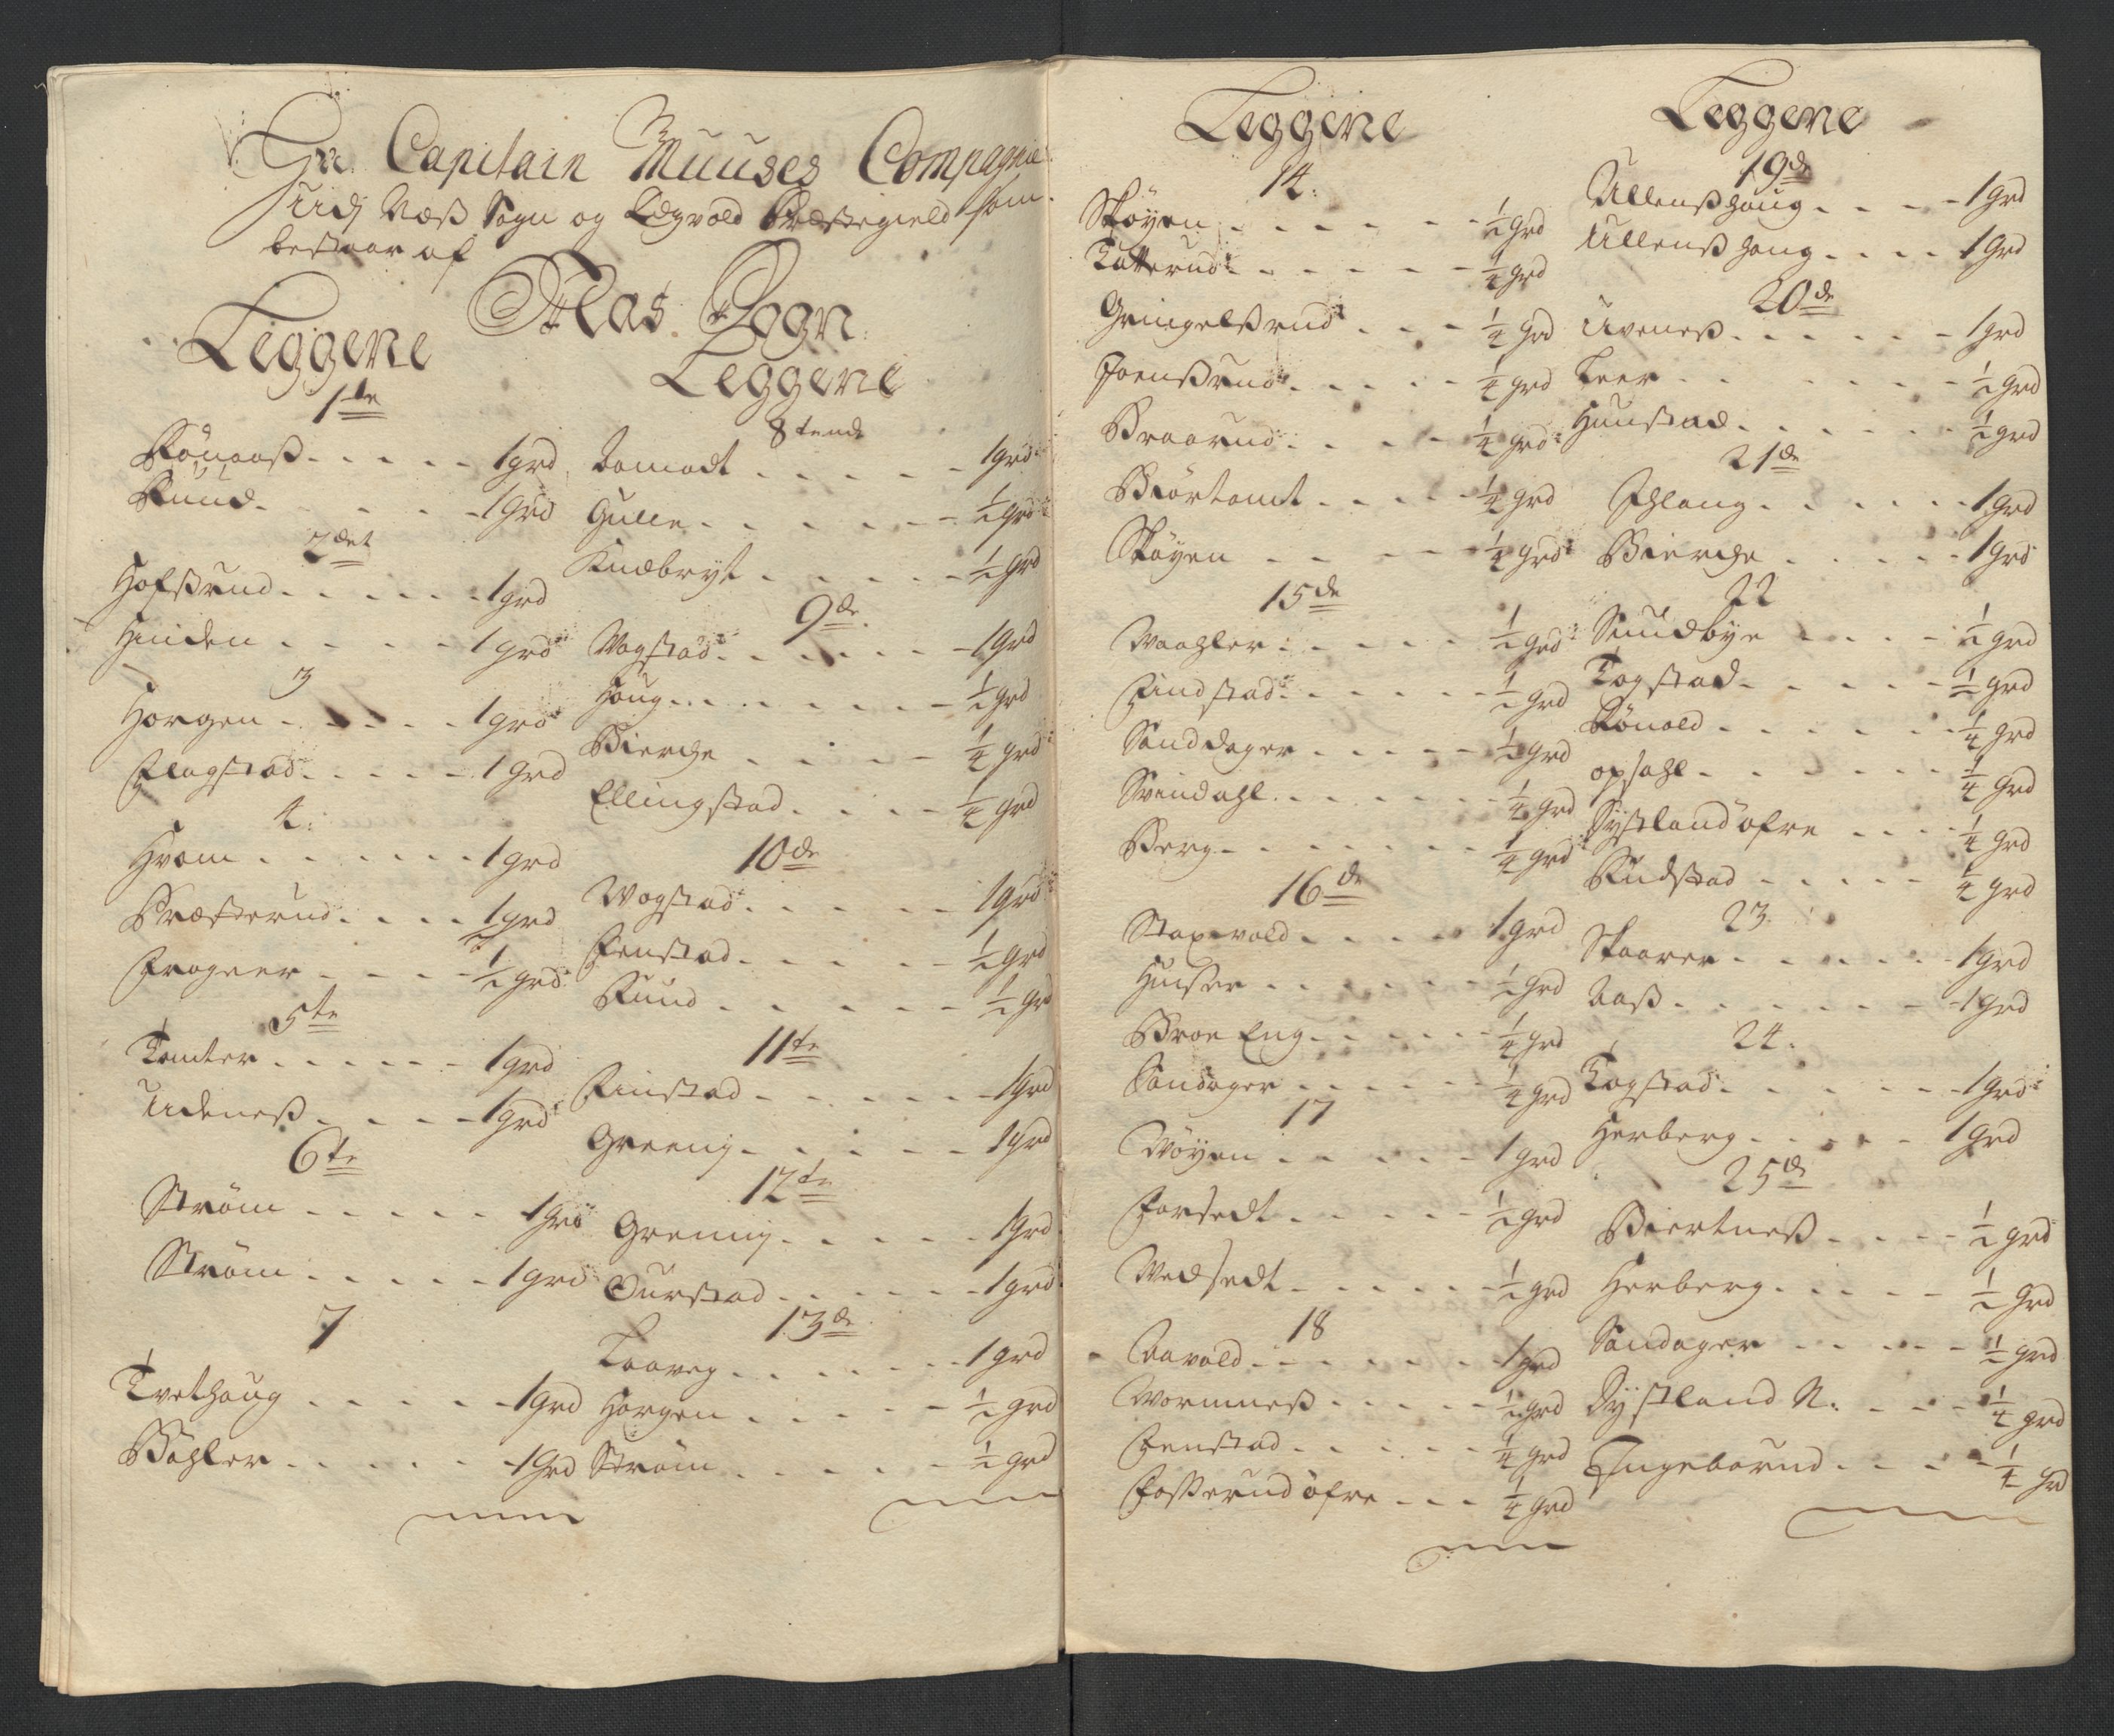 Hr. Capitain Muuses Compagnie
udj Næß Sogn og Præstegield som
bestaar af
Næs Sogn
Leggene
1de
Rönaaß 1 grd
Ruud 1 grd
2det
Hofsrud 1 grd
Hinden 1 grd
3
Horgen 1 grd
Flagstad 1 grd
4.
Hvam 1 grd
Præsterud 1/2 grd
Frogner 1/2 grd
5te
Tomter 1 grd
Udeneß 1 grd
6te
Ström 1 grd
Ström 1 grd
7
Tvethoug 1 grd
Böhler 1 grd
Leggene
8tende
Gulle 1/2 grd
Knæbryt 1/2 grd
9de
Wogstad 1 grd
Houg 1/2 grd
Bierche 1/4 grd
Ellingstad 1/4 grd
10de
Wogstad 1 grd
Fenstad 1/2 grd
Ruud 1/2 grd
11te
Finstad 1 grd
Greeny 1 grd
12te
Grenny 1 grd
Ourstad 1 grd
13de
Taareg 1 grd
Horgen 1/2 grd
Ström 1/2 grd
Leggene
14.
Sköyen 1/2 grd
Tatterud 1/4 grd
Gringelßrud 1/4 grd
Joenßrud 1/4 grd
Braarud 1/4 grd
Biörtomt 1/4 grd
Sköyen 1/4 grd
15de
Waahler 1/2 grd
Findstad 1/2 grd
Sanddager 1/2 grd
Svindahl 1/4 grd
Berg 1/4 grd
16de
Stapvald 1 grd
Huser 1/2 grd
Broe Eng 1/4 grd
Sandager 1/4 grd
17
Wöyen 1 grd
Forsedt 1/2 grd
Wedsedt 1/2 grd
18
Aavald 1 grd
Wormneß 1/2 grd
Fenstad 1/4 grd
Fosserud öfre 1/4 grd
Leggene
19de
Ullenßhoug 1 grd
Ullenßhoug 1 grd
20de
Uveneß 1 grd
Leer 1/2 grd
Hunstad 1/2 grd
21de
Ihlang 1 grd
Bierche 1 grd
22
Sundbye 1/2 grd
Togstad 1/2 grd
Rönold 1/4 grd
opsahl 1/4 grd
Dystland öfre 1/4 grd
Rudstad 1/4 grd
23.
Skaarer 1 grd
Aaß 1 grd
24.
Togstad 1 grd
Herberg 1 grd
25de
Biertneß 1/2 grd
Herberg 1/2 grd
Sandager 1/2 grd
Dystland N. 1/4 grd
Ingeborud 1/4 grd